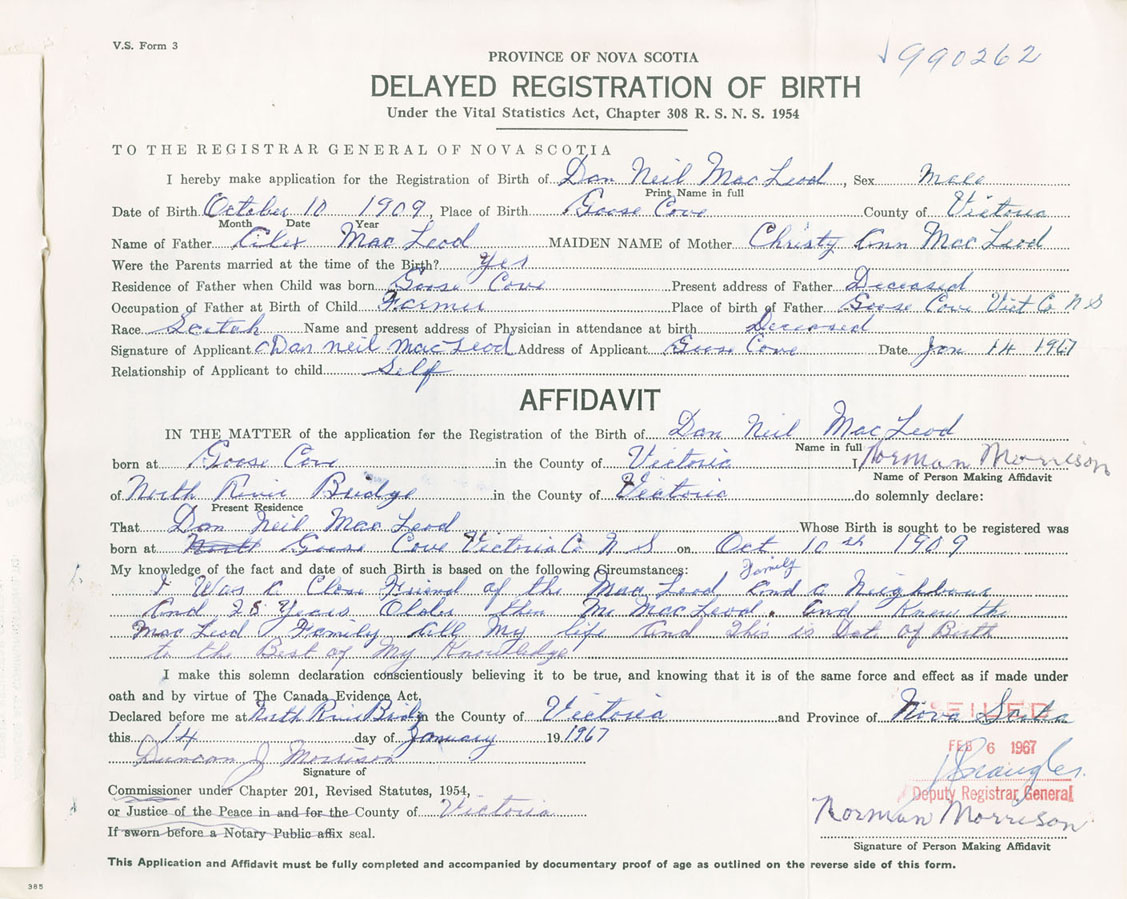 V.S. Form 3
990262
PROVINCE OF NOVA SCOTIA
DELAYED REGISTRATION OF BIRTH
Under the Vital Statistics Act, Chapter 308 R. S. N. S. 1954
TO THE REGISTRAR GENERAL OF NOVA SCOTIA
I hereby make application for the Registration of Birth of Dan Neil MacLeod, Sex Male
Print Name in full
Date of Birth October 10 1909, Place of Birth Goose Cove County of Victoria
Month Date Year
Name of Father Alex MacLeod MAIDEN NAME of Mother Christy Ann MacLeod
Were the Parents married at the time of the Birth? Yes
Residence of Father when Child was born Goose Cove Present address of Father Deceased
Occupation of Father at Birth of Child Farmer Place of birth of Father Goose Cove Vict Co. N S
Race Scotch Name and present address of Physician in attendance at birth Deceased
Signature of Applicant Dan neil macLeod Address of Applicant Goose Cove Date Jan 14 1967
Relationship of Applicant to child Self
AFFIDAVIT
IN THE MATTER of the application for the Registration of the Birth of Dan Neil MacLeod
Name in full
born at Goose Cove in the County of Victoria I Norman Morrison
Name of Person Making Affidavit
of North River Bridge in the County of Victoria do solemnly declare:
Present Residence
That Dan Neil MacLeod Whose Birth is sought to be registered was
born at North Goose Cove Victoria Co N S on Oct 10th 1909
My knowledge of the fact and date of such Birth is based on the following Circumstances: Family
I Was a Close Friend of the MacLeod and a Neighbour
And 28 Years Older then Mr MacLeod. and Knew the
MacLeod Family All My life And This is Dat. of Birth
to the Best of My Knowledge
I make this solemn declaration conscientiously believing it to be true, and knowing that it is of the same force and effect as if made under
oath and by virtue of The Canada Evidence Act,
Declared before me at North River Bridge in the County of Victoria and Province of Nova Scotia
this 14 day of January 19 1967
FEB 6 1967
Duncan J Morrison
Signature of
Deputy Registrar General
Commissioner under Chapter 201, Revised Statutes, 1954,
or Justice of the Peace in and for the County of Victoria
Norman Morrison
If sworn before a Notary Public affix seal.
Signature of Person Making Affidavit
This Application and Affidavit must be fully completed and accompanied by documentary proof of age as outlined on the reverse side of this form.
385